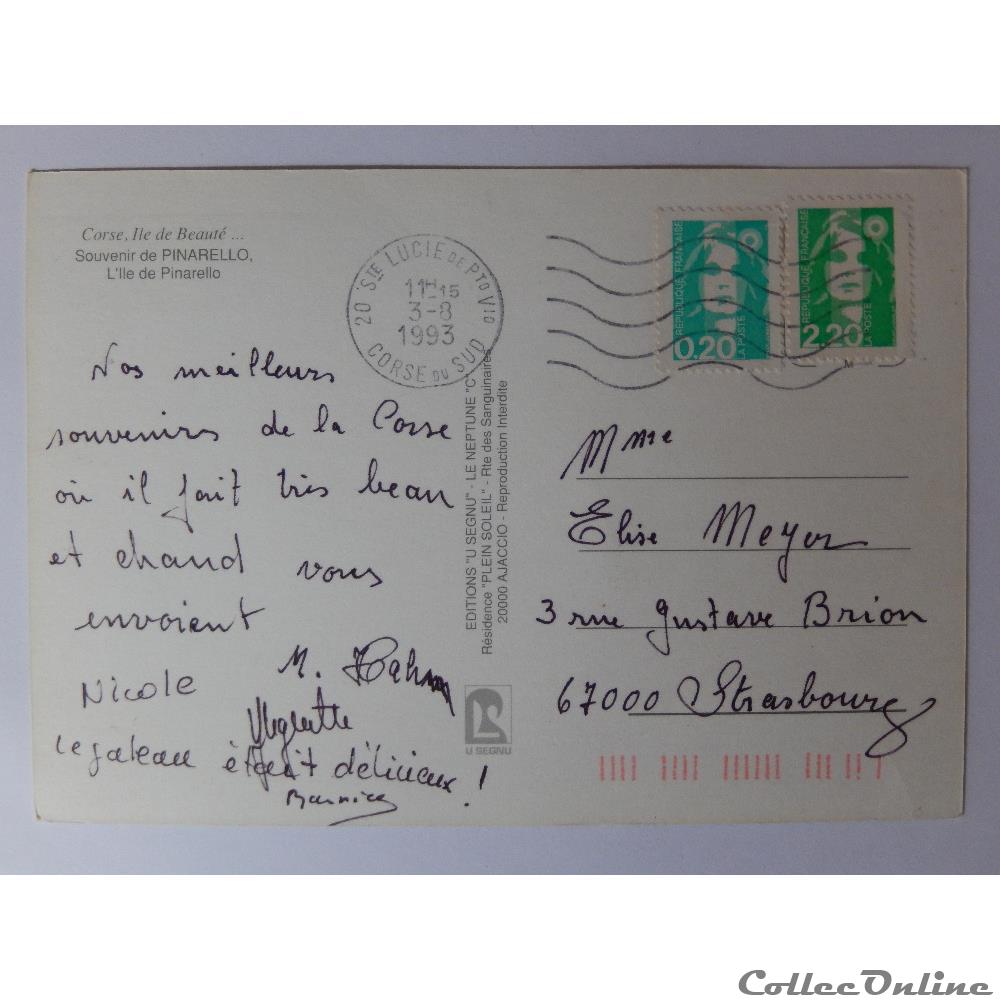 Corse, Ile de Beauté ...
Souvenir de PINARELLO,
L'Ile de Pinarello
20 STE LUCIE DE PTO VIO
11H15
3-8
1993
CORSE DU SUD
RÉPUBLIQUE FRANÇAISE
0.20
LA POSTE
RÉPUBLIQUE FRANÇAISE
2.20
LA POSTE
M
Nos meilleurs
souvenirs de la Corse
où il fait très beau
et chaud vous
envoient
M.
Nicole
Huguette
Le gateau était délicieux !
EDITIONS "U SEGNU" - LE NEPTUNE "C"
Résidence "PLEIN SOLEIL" - Rte des Sanguinaires
20000 AJACCIO - Reproduction Interdite
U SEGNU
Mme
Elise Meyer
3 rue Gustave Brion
67000 Strasbourg
CollecOnline